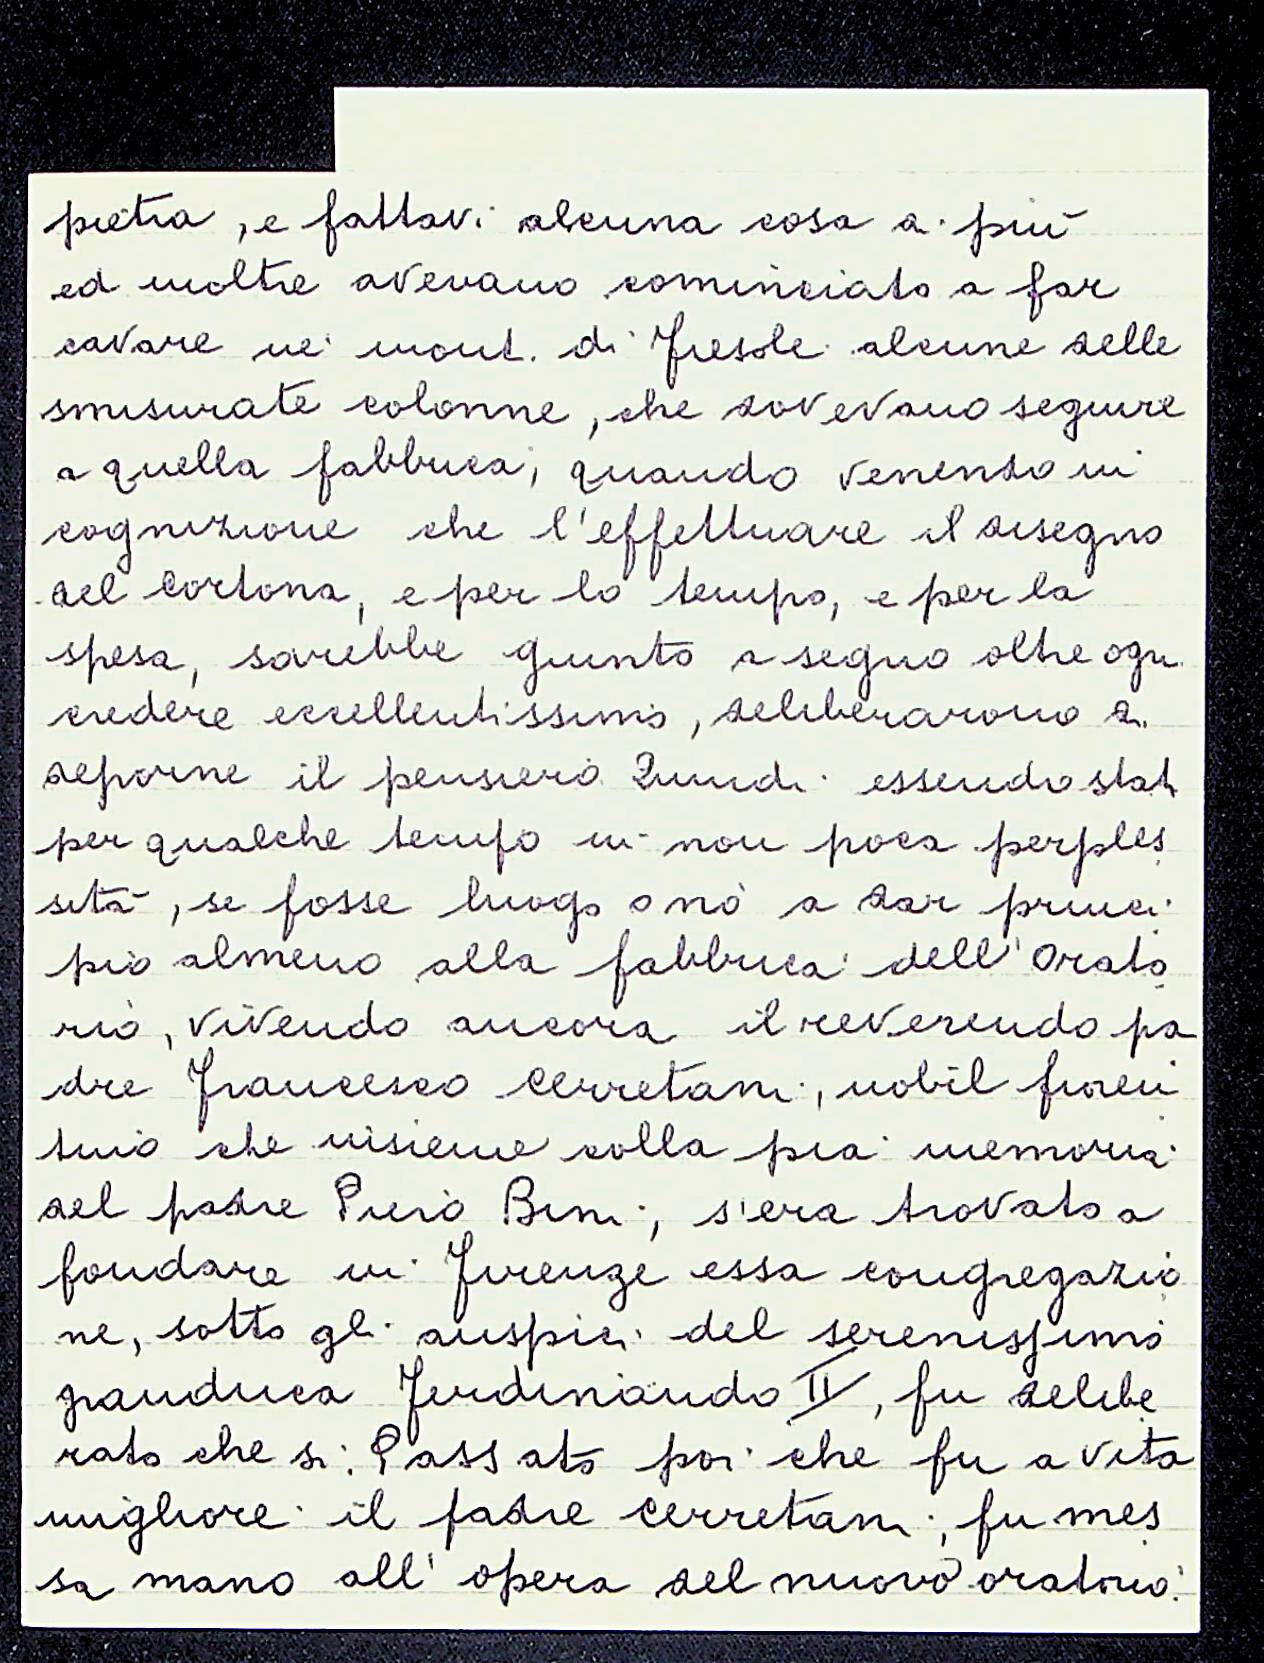 pietra, e fattavi alcuna cosa di più
ed inoltre avevano cominciato a far
cavare ne' monti di Fiesole alcune delle
smisurate colonne, che dovevano seguire
a quella fabbrica, quando venendo in
cognizione che l'effettuare il disegno
del Cortona, e per lo tempo, e per la
spesa, sarebbe giunto a segno oltre ogni
credere eccellentissimo, deliberarono di
deporne il pensiero Quindi essendo stati
per qualche tempo in non poca perples
sità, se fosse luogo o no a dar princi
pio almeno alla fabbrica dell'Orato
rio, vivendo ancora il reverendo pa
dre Francesco Cerretani, nobil fioren
tino che insieme colla pia memoria
del padre Piero Bini, s'era trovato a
fondare in Firenze essa congregazio
ne, sotto gli auspici del serenissimo
granduca Ferdinando II, fu delibe
rato che si. Passato poi che fu a vita
migliore il padre Cerretani, fu mes
sa mano all'opera del nuovo oratorio.